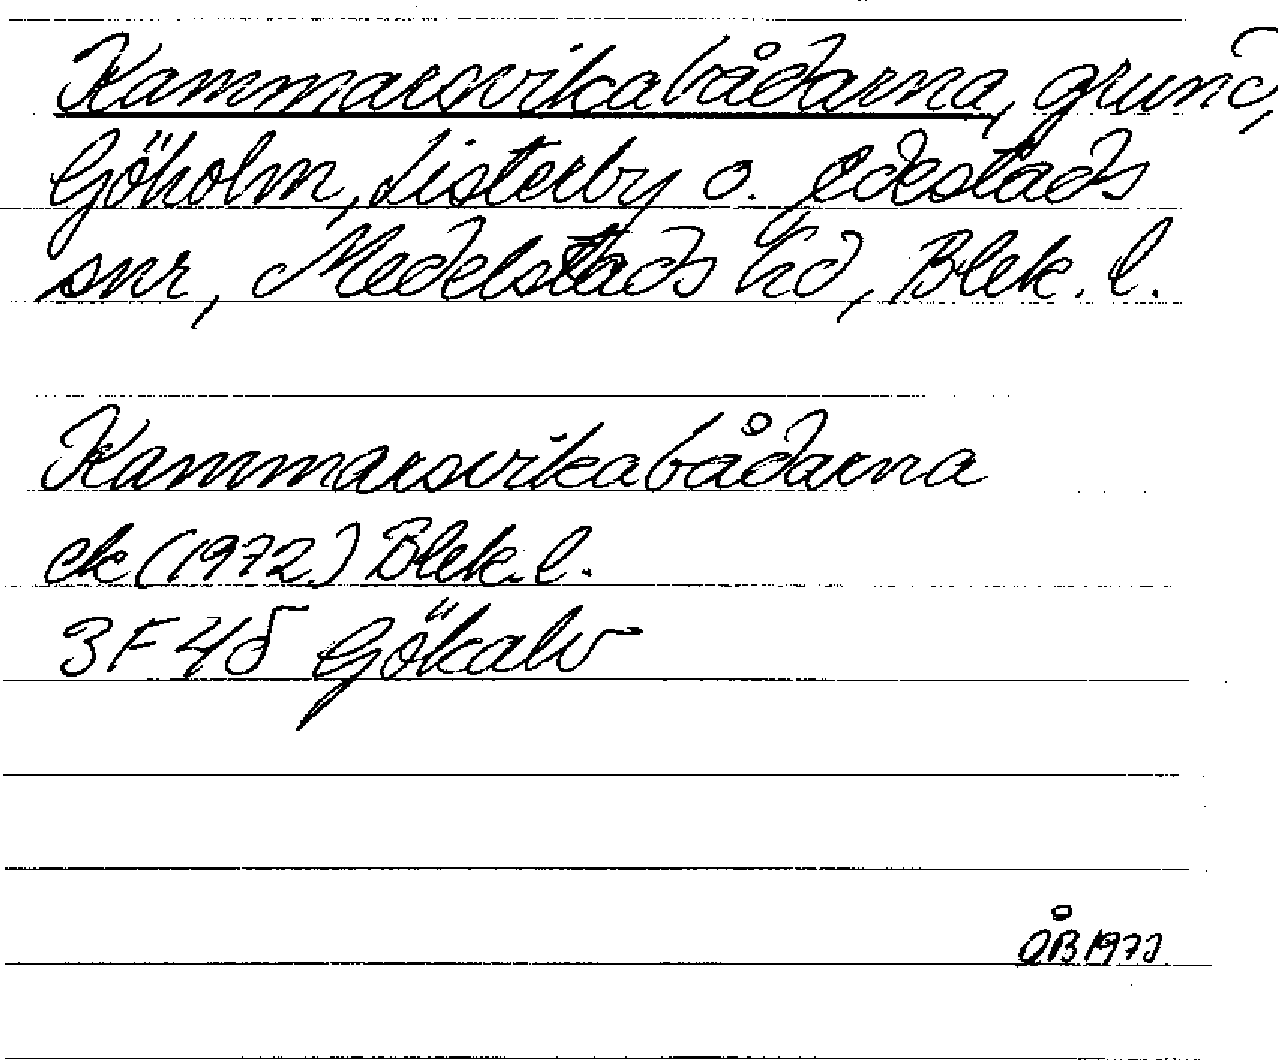 Kammarsvikabådarna, grund,
Göholm, Listerby o. Edestads
snr, Medelstads hd, Blek. l.
Kammarsvikabådarna
ek (1972) Blek. l.
3F 4d Gökalv
ÅB 1973